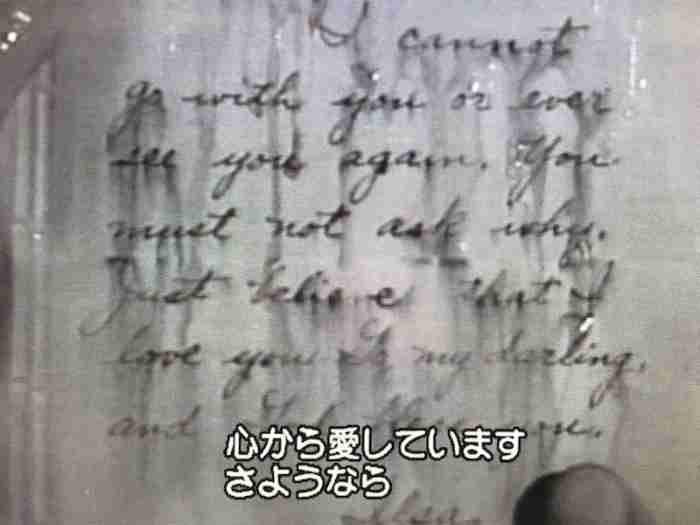 I cannot
go with you or ever
see you again. You
must not ask why.
Just believe that I
love you. Go, my darling,
and God bless you.
心から愛しています
さようなら
Ilsa